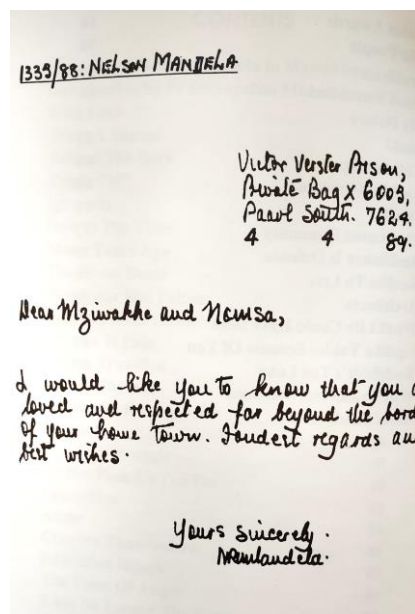 1335/88: NELSON MANDELA
Victor Verster Prison,
Private Bag X 6005,
Paarl South. 7624.
4 4 89.
Dear Mzwakhe and Nomsa,
I would like you to know that you a
loved and respected far beyond the bord
of your home town. Fondest regards an
best wishes.
Yours sincerely.
NRMandela.